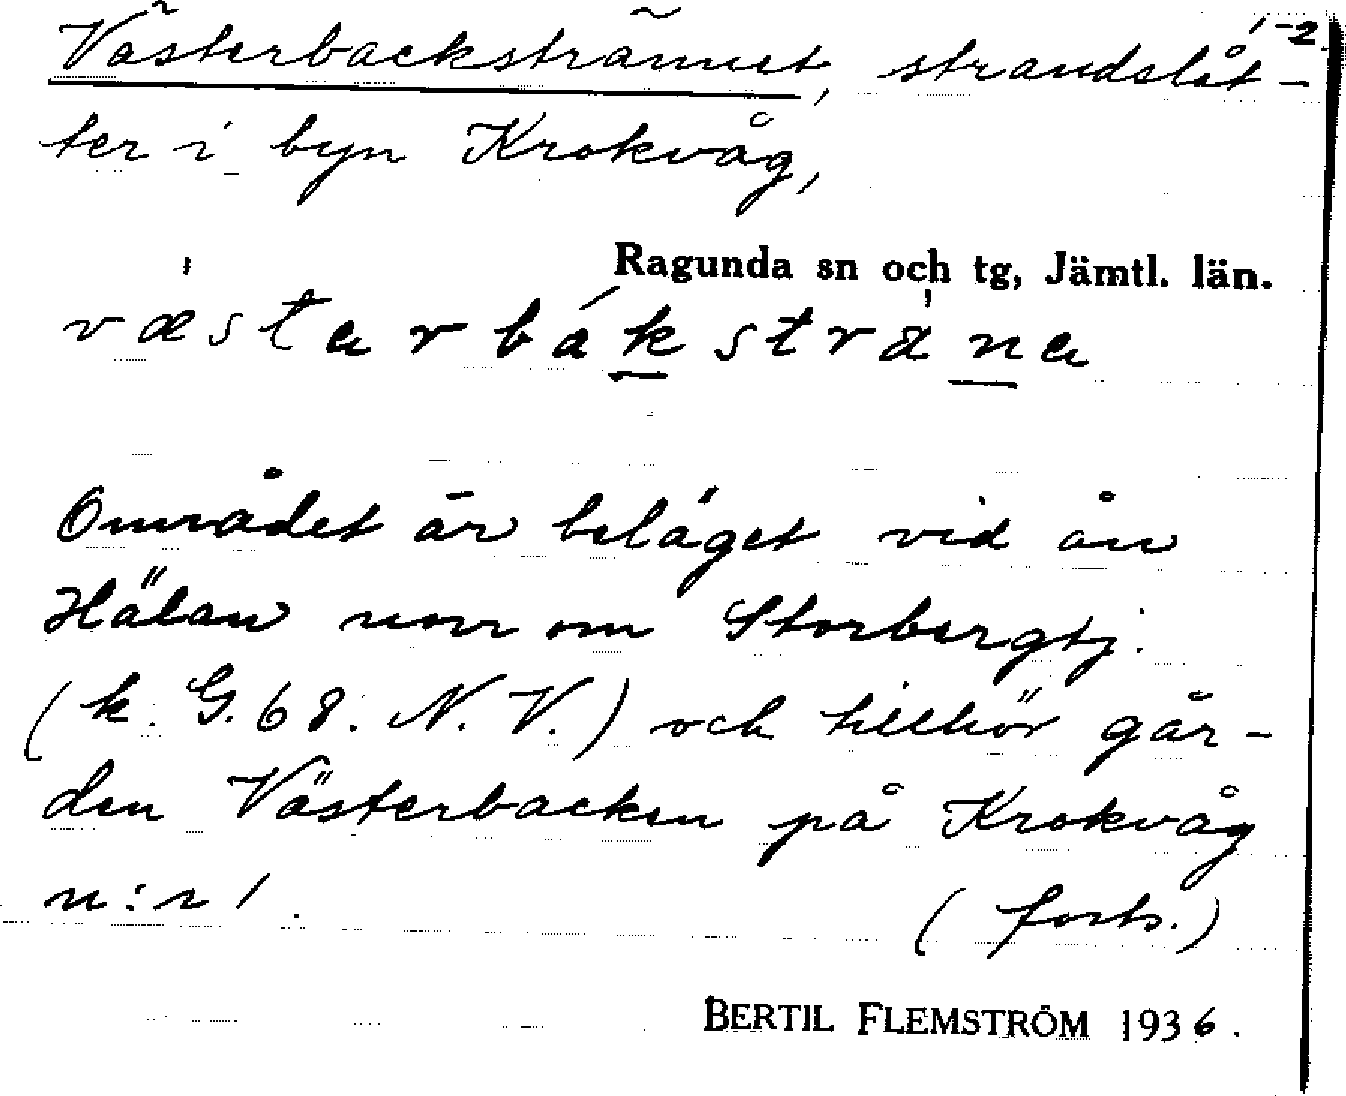 1-2
Västerbackstrännet, strandslåt-
ter i byn Krokvåg,
Ragunda sn och tg, Jämtl. län.
væstarbáksträna
Området är beläget vid ån
Hälan norr om Storbergtj.
(k. G. 68. N. V.) och tillhör går-
den Västerbacken på Krokvåg
n:r 1.
(forts.)
BERTIL FLEMSTRÖM 1936.